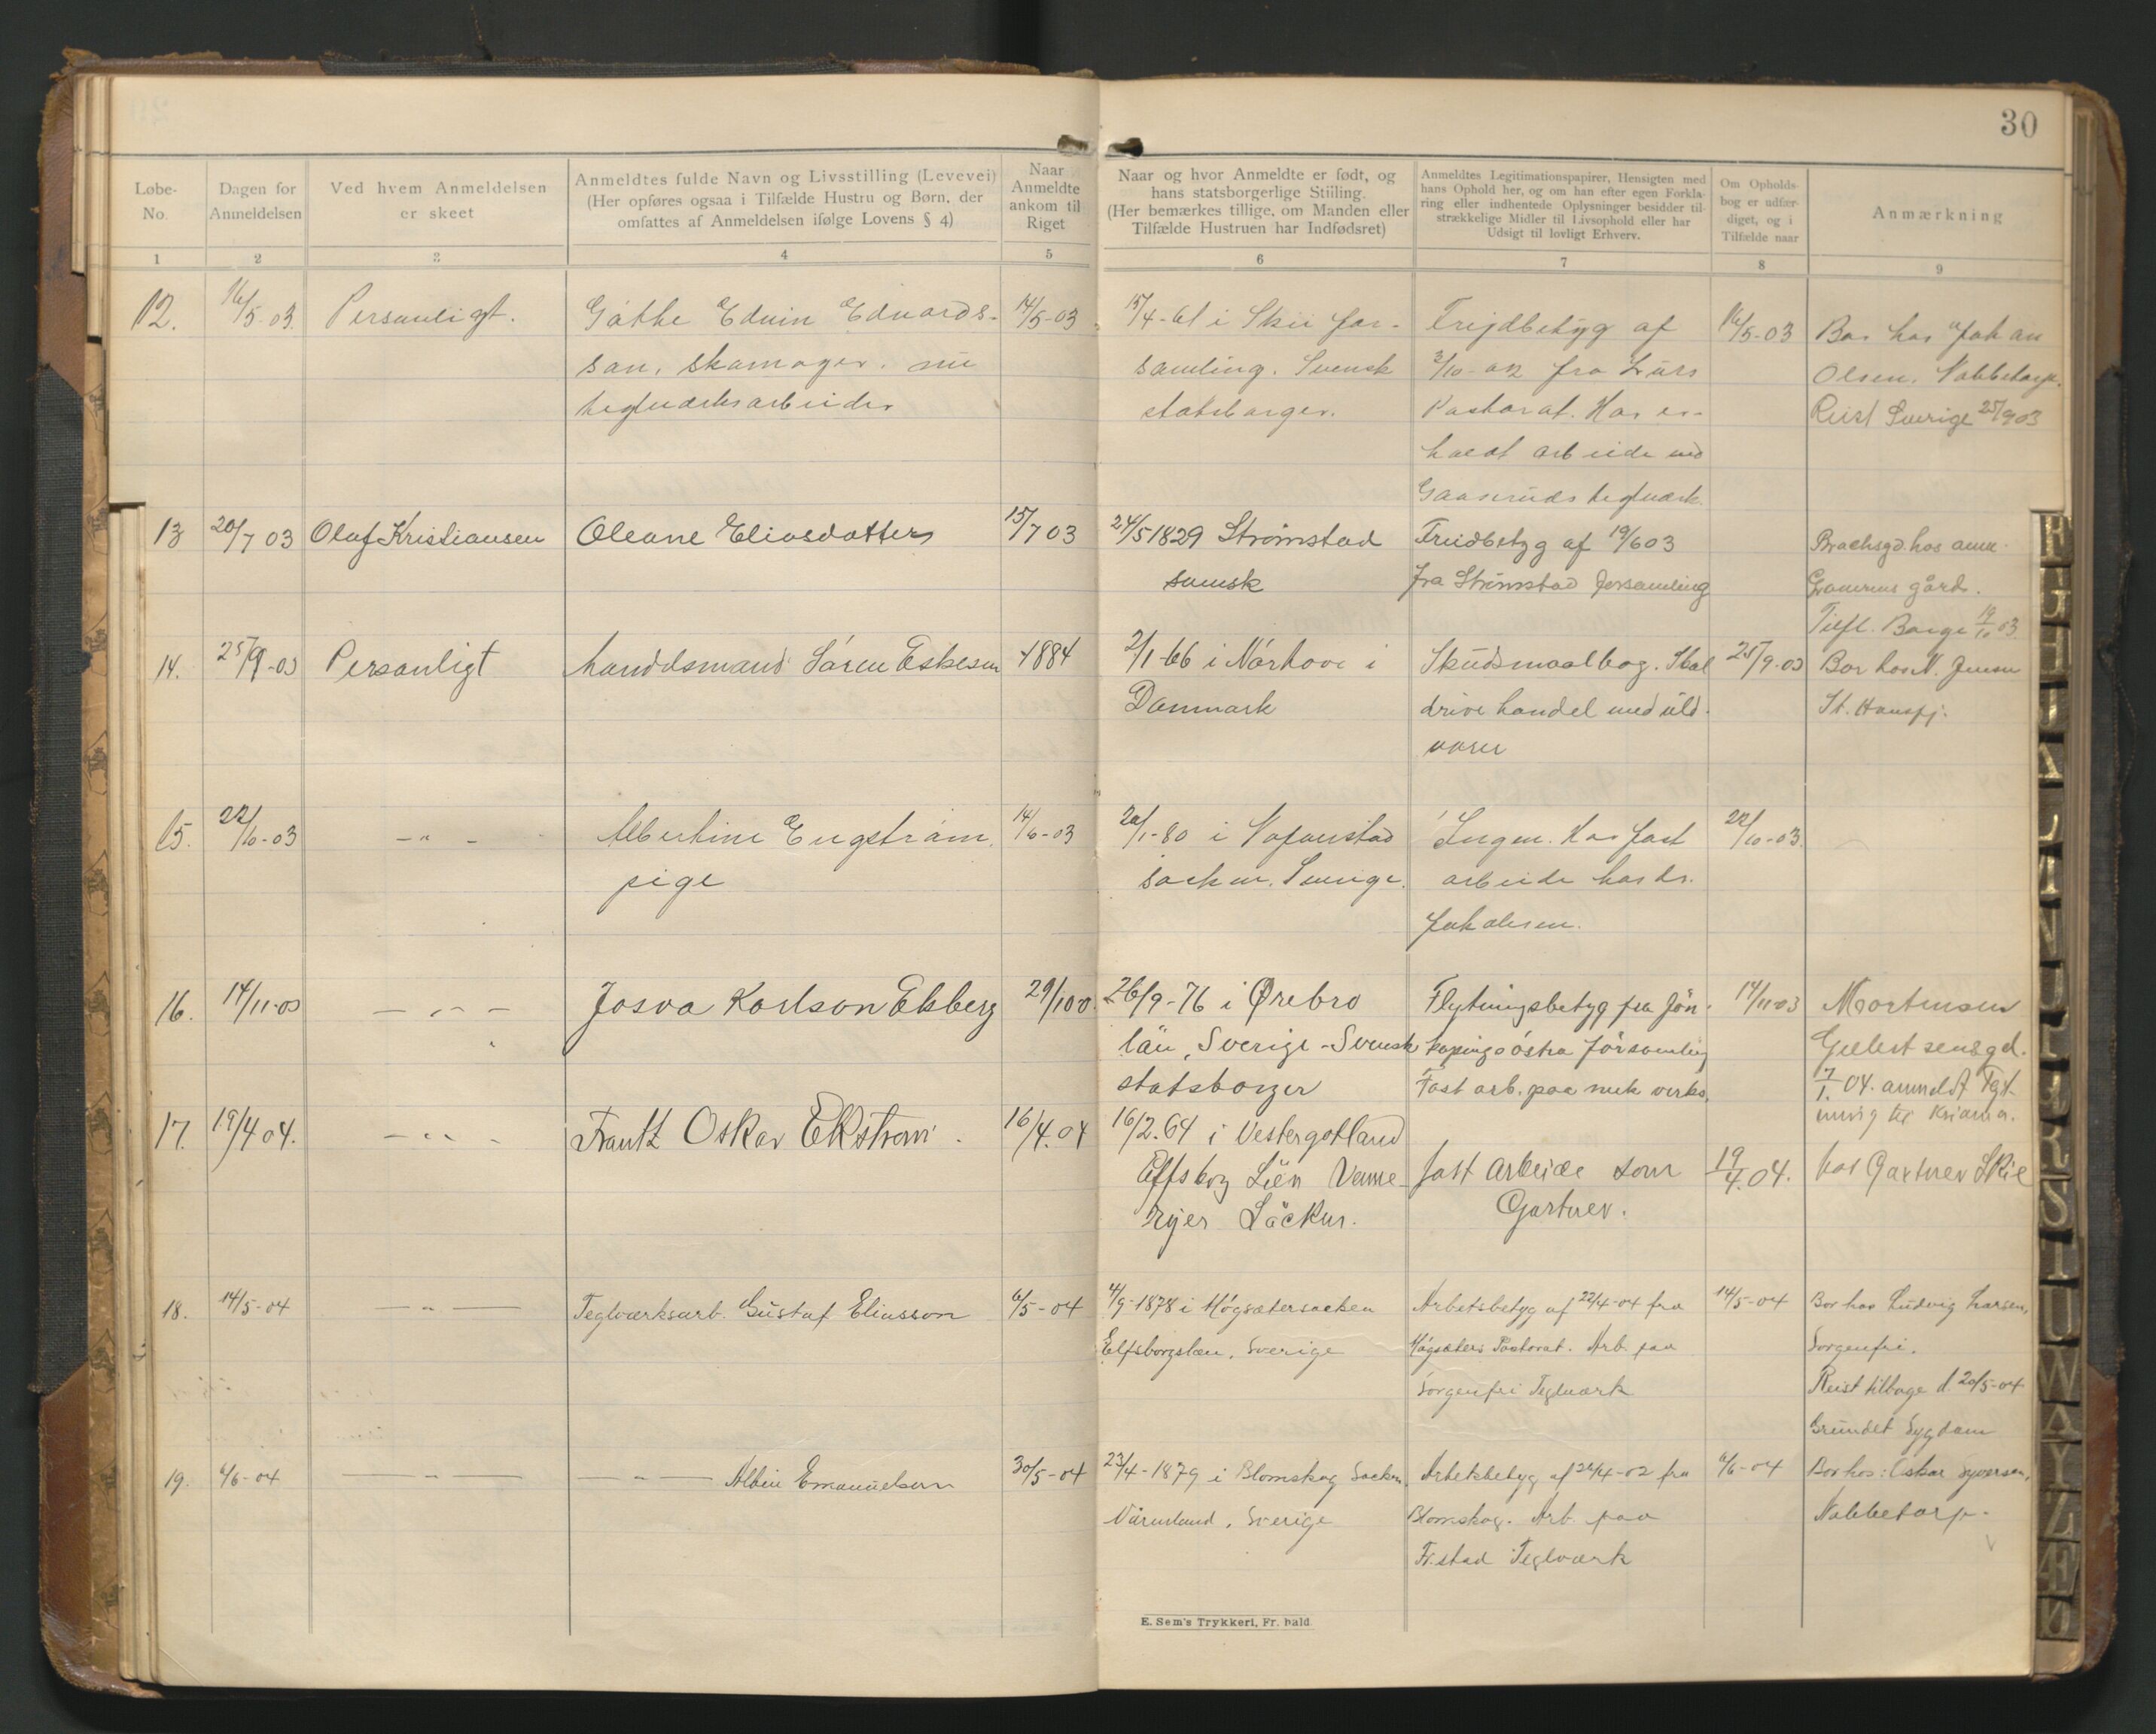 30
Løbe-
No.
Dagen for
Anmeldelsen
Ved hvem Anmeldelsen
er skeet
Anmeldtes fulde Navn og Livsstilling (Levevei)
(Her opføres ogsaa i Tilfælde Hustru og Børn, der
omfattes af Anmeldelsen ifølge Lovens § 4)
Naar
Anmeldte
ankom til
Riget
Naar og hvor Anmeldte er født, og
hans statsborgerlige Stilling.
(Her bemærkes tillige, om Manden eller
Tilfælde Hustruen har Indfødsret)
Anmeldtes Legitimationspapirer, Hensigten med
hans Ophold her, og om han efter egen Forkla-
ring eller indhentede Oplysninger besidder til-
strækkelige Midler til Livsophold eller har
Udsigt til lovligt Erhverv.
Om Opholds-
bog er udfær-
diget, og i
Tilfælde naar
Anmærkning
1 2 3 4 5 6 7 8 9
12. 16/5-03. Personligt.
Göthe Edvin Edvards-
son, skomager. nu
teglverksarbeider
14/5-03
15/4-61 i Skee for-
samling. Svensk
statsborger.
Frejdbetyg af
3/10-02 fra Lurs
Pastorat. Har er-
holdt arbeide ved
Gaaseruds teglværk.
16/5-03
Bor hos Johan
Olsen, Nabbetorp.
Reist Sverige 25/9 03
13 20/7 03 Olaf Kristiansen
Oleane Eliasdatter
15/7 03
24/5 1829 Strømstad
svensk
Freidbetyg af 19/6 03
fra Strömstad forsamling
gård.
Tilfl. Borge 19/10 03
14. 25/9-03 Personligt
handelsmand Sören Eskesen
1884
2/1-66 i Nörhove i
Danmark
Skudsmaalbog. Skal
drive handel med uld-
varer
25/9-03
Bor hos N. Jensen
St. Hansfj.
15. 22/10-03 - " -
Albertine Engström.
pige
14/6-03
20/1-80 i
socken. Sverige.
Ingen. Har fast
arbeide hos dr.
Jakobsen.
22/10-03.
16. 14/11-03 - " -
Josva Karlson Ekberg
29/10 0
26/9-76 i Ørebro
län, Sverige - Svensk
statsborger
Flytningsbetyg fra Jön-
kopings östra församling
Fast arb. paa mek verks.
14/11-03
Mortensen
Gulbrtsensgd.
7/1 04. anmeldt flyt-
ning til Kr.ania.
17. 19/4 04. - " -
Frantz Oskar Ekstrom.
16/4. 04
16/2. 64 i Vestergotland
Elfsborg Lien Venne-
Socken.
fast arbeide som
Gartner.
19/4. 04.
hos Gartner Skie
18. 14/5-04 - " -
Teglværksarb. Gustaf Eliasson
6/5-04
4/9-1878 i Högsætersocken
Elfsborgslæn, Sverige
Arbetsbetyg af 22/4-04 fra
Högsæters Pastorat. Arb. paa
Sorgenfri Teglværk
14/5-04
Bor hos Ludvig Larsen,
Sorgenfri.
Reist tilbage d. 20/5-04
Grundet Sygdom
19. 6/6-04 - " -
- " - Albin Emanuelsson
30/5-04
23/4-1879 i Blomskog Socken,
Värmland, Sverige
Arbetsbetyg af 24/4-02 fra
Blomskog. Arb. paa
Fr.stad Teglværk
6/6-04
Bor hos: Oskar Syversen,
Nabbetorp.
E. Sem's Trykkeri, Fr. hald.